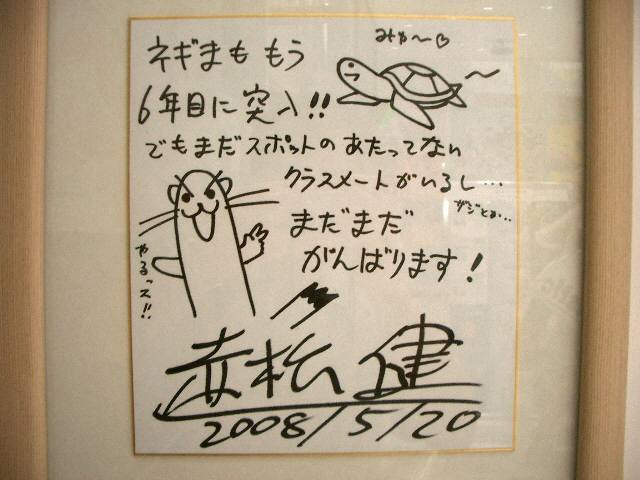 ネギまも もう
みゅ〜♡
6年目に突入!!
でもまだスポットのあたってない
クラスメートがいるし…
ザジとか…
まだまだ
がんばります!
やるっス!!
赤松健
2008/5/20